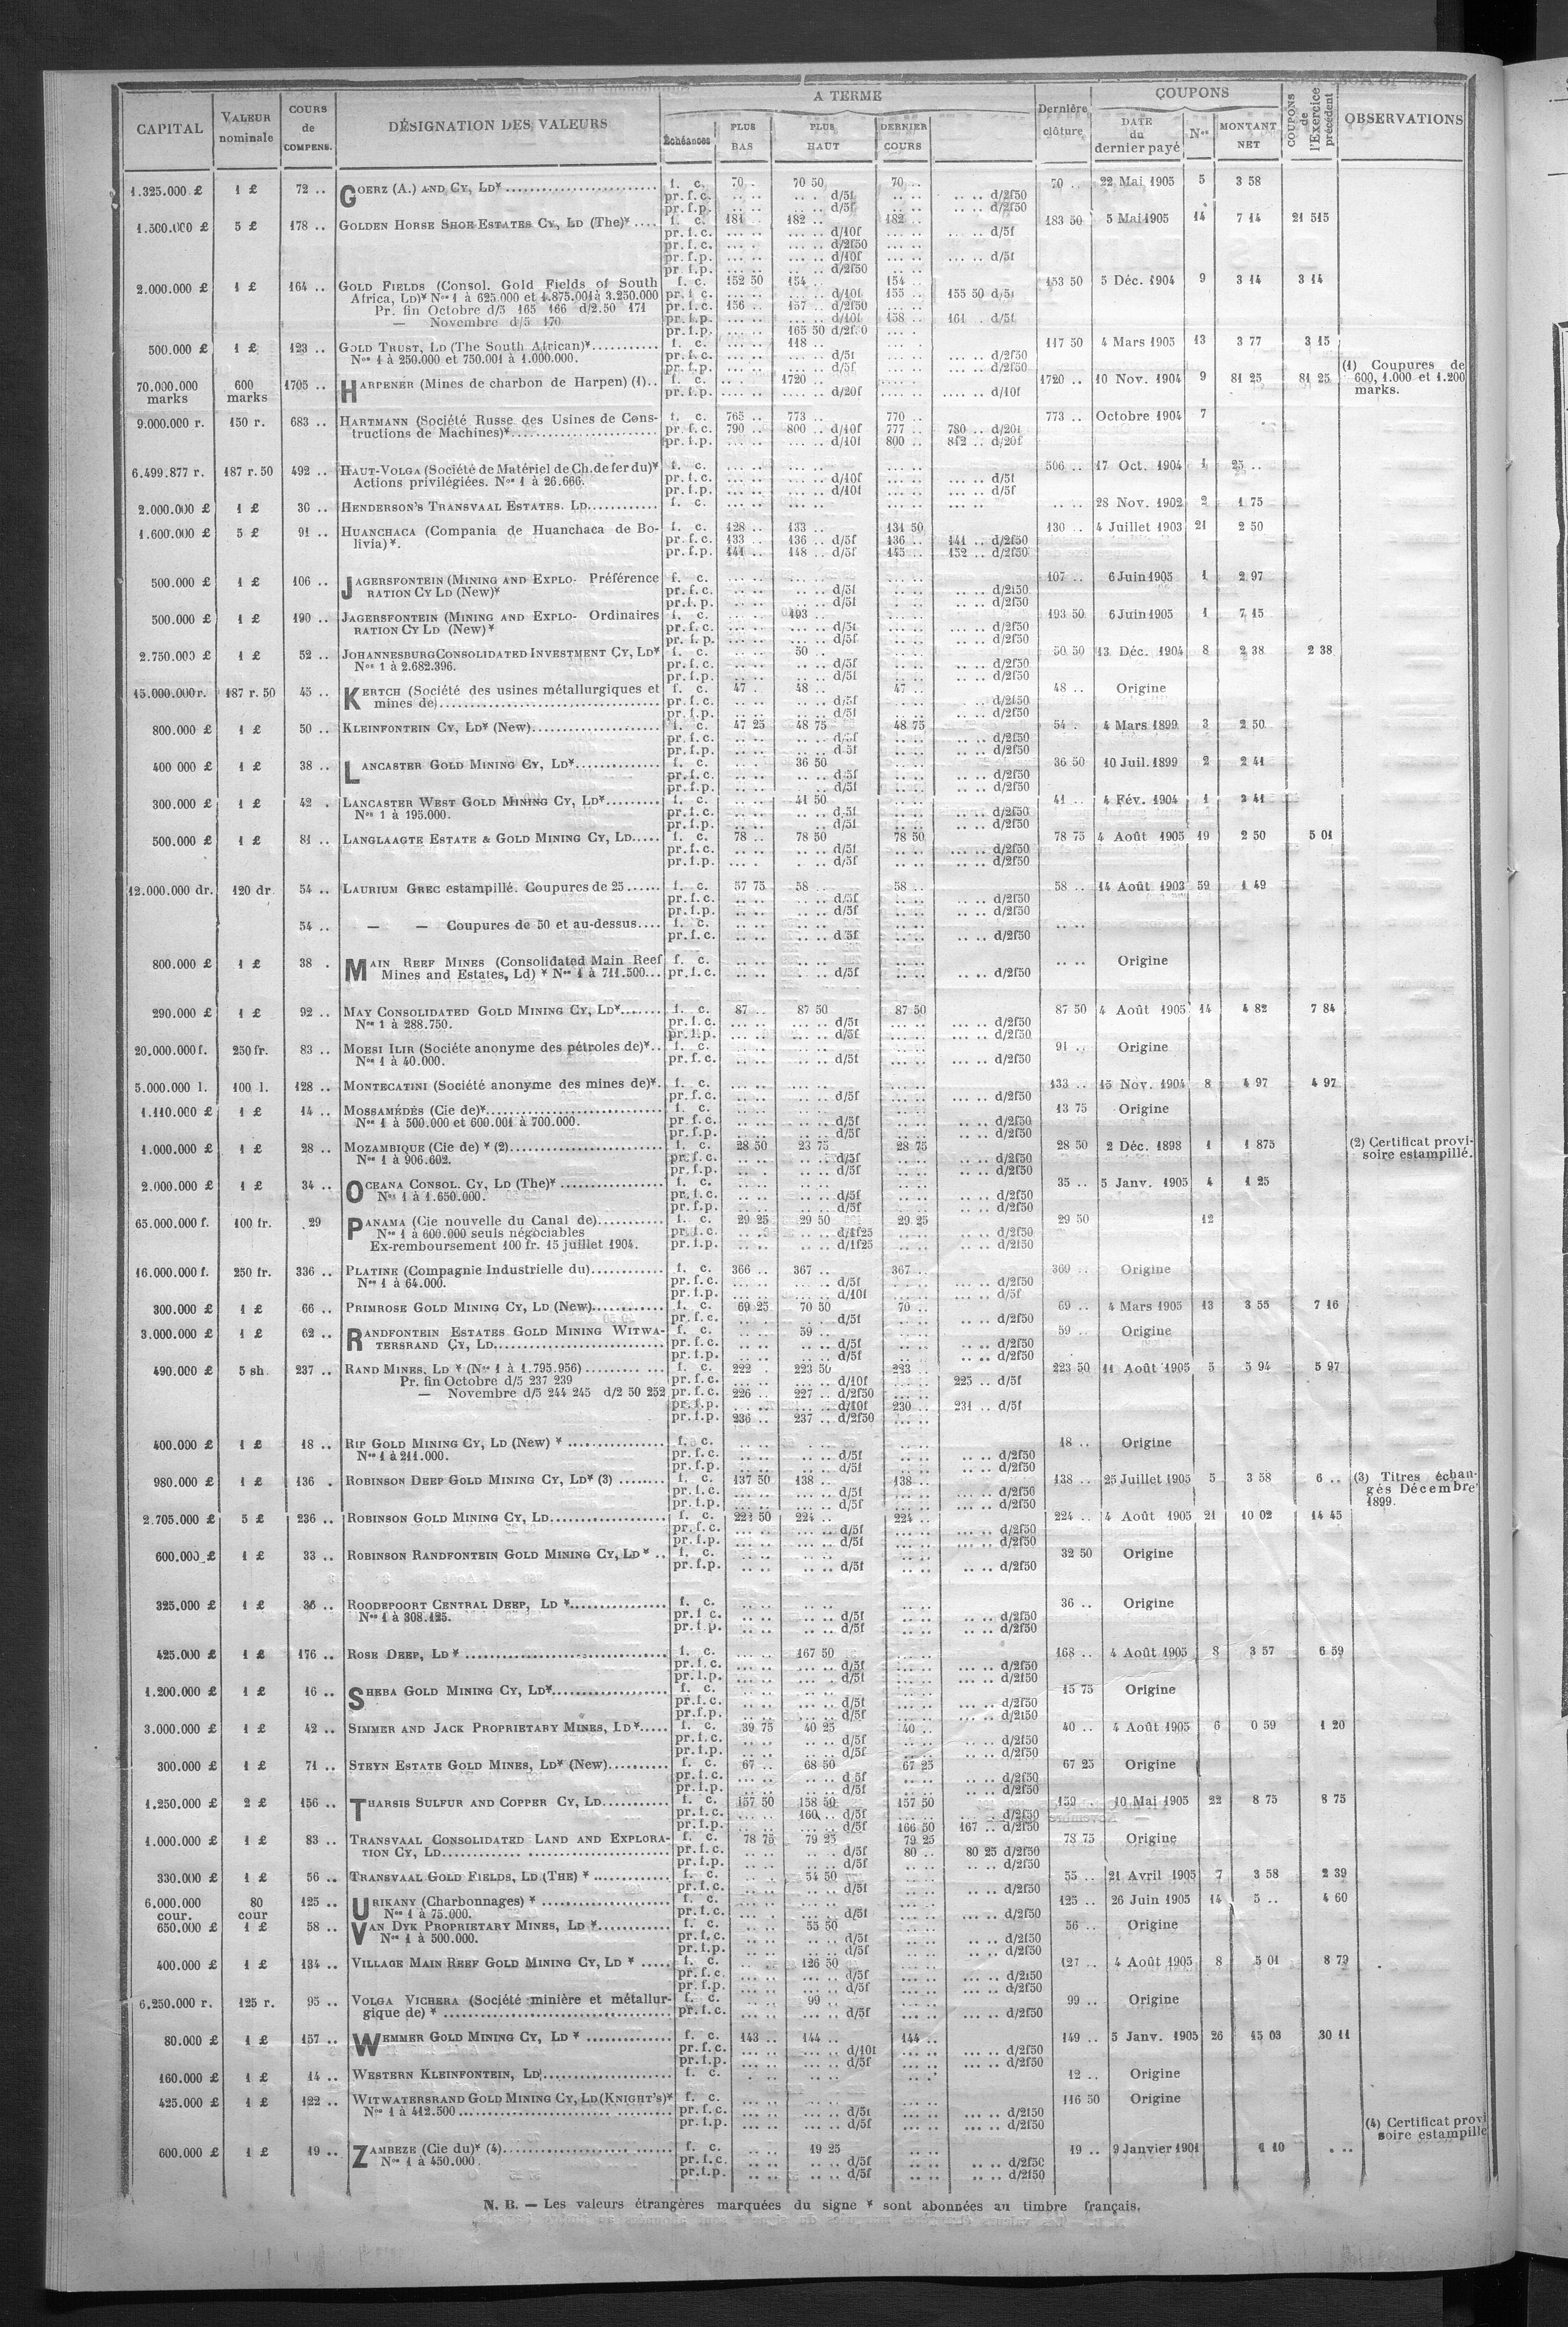 CAPITAL VALEUR nominale COURS de COMPENS. DÉSIGNATION DES VALEURS A TERME Échéances PLUS BAS PLUS HAUT DERNIER COURS Dernière clôture COUPONS DATE du dernier payé Nos MONTANT NET COUPONS de l'Exercice précédent OBSERVATIONS
1.325.000 £ 1 £ 72 .. GOERZ (A.) AND CY, LD* f. c. 70 .. 70 50 70 .. 70 .. 22 Mai 1905 5 3 58
pr. f. c. .. .. .. .. d/5f .. .. .. .. d/2f50
pr. f. p. .. .. .. .. d/5f .. .. .. .. d/2f50
1.500.000 £ 5 £ 178 .. GOLDEN HORSE SHOE ESTATES CY, LD (The)* .... f. c. 181 .. 182 .. 182 .. 183 50 5 Mai 1905 14 7 14 21 515
pr. f. c. d/10f d/5f
pr. f. c. d/2f50
pr. f. p. d/10f d/5f
pr. f. p. d/2f50
2.000.000 £ 1 £ 164 .. GOLD FIELDS (Consol. Gold Fields of South f. c. 152 50 154 .. 154 .. 153 50 5 Déc. 1904 9 3 14 3 14
Africa, LD)* Nos 1 à 625.000 et 1.875.001 à 3.250.000 pr. f. c. d/10f 155 .. 155 50 d/5f
Pr. fin Octobre d/5 165 166 d/2.50 171 pr. f. c. 156 .. 157 .. d/2f50
— Novembre d/5 170 pr. f. p. d/10f 158 .. 161 .. d/5f
pr. f. p. 165 50 d/2f50
500.000 £ 1 £ 123 .. GOLD TRUST, LD (The South African)* f. c. 118 .. 117 50 4 Mars 1905 13 3 77 3 15
Nos 1 à 250.000 et 750.001 à 1.000.000. pr. f. c. d/5f d/2f50
pr. f. p. d/5f d/2f50
70.000.000 marks 600 marks 1705 .. HARPENER (Mines de charbon de Harpen) (1).. f. c. 1720 .. 1720 .. 10 Nov. 1904 9 81 25 81 25 (1) Coupures de 600, 1.000 et 1.200 marks.
pr. f. p. d/20f d/10f
9.000.000 r. 150 r. 683 .. HARTMANN (Société Russe des Usines de Cons- f. c. 765 .. 773 .. 770 .. 773 .. Octobre 1904 7
tructions de Machines)* pr. f. c. 790 .. 800 .. d/10f 777 .. 780 .. d/20f
pr. f. p. d/10f 800 .. 812 .. d/20f
6.499.877 r. 187 r. 50 492 .. HAUT-VOLGA (Société de Matériel de Ch. de fer du)* f. c. 506 .. 17 Oct. 1904 1 25 ..
Actions privilégiées. Nos 1 à 26.666. pr. f. c. d/10f d/5f
pr. f. p. d/10f d/5f
2.000.000 £ 1 £ 30 .. HENDERSON'S TRANSVAAL ESTATES. LD f. c. .. .. 28 Nov. 1902 2 1 75
1.600.000 £ 5 £ 91 .. HUANCHACA (Compania de Huanchaca de Bo- f. c. 128 .. 133 .. 131 50 130 .. 4 Juillet 1903 21 2 50
livia)*. pr. f. c. 133 .. 136 .. d/5f 136 .. 141 .. d/2f50
pr. f. p. 141 .. 148 .. d/5f 145 .. 152 .. d/2f50
500.000 £ 1 £ 106 .. JAGERSFONTEIN (MINING AND EXPLO- Préférence f. c. 107 .. 6 Juin 1905 1 2 97
RATION CY LD (New)* pr. f. c. d/5f d/2f50
pr. f. p. d/5f d/2f50
500.000 £ 1 £ 190 .. JAGERSFONTEIN (MINING AND EXPLO- Ordinaires f. c. 193 .. 193 50 6 Juin 1905 1 7 15
RATION CY LD (New)* pr. f. c. d/5f d/2f50
pr. f. p. d/5f d/2f50
2.750.000 £ 1 £ 52 .. JOHANNESBURG CONSOLIDATED INVESTMENT CY, LD* f. c. 50 .. 50 50 13 Déc. 1904 8 2 38 2 38
Nos 1 à 2.682.396. pr. f. c. d/5f d/2f50
pr. f. p. d/5f d/2f50
15.000.000 r. 187 r. 50 45 .. KERTCH (Société des usines métallurgiques et f. c. 47 .. 48 .. 47 .. 48 .. Origine
mines de) pr. f. c. d/5f d/2f50
pr. f. p. d/5f d/2f50
800.000 £ 1 £ 50 .. KLEINFONTEIN CY, LD* (New) f. c. 47 25 48 75 48 75 54 .. 4 Mars 1899 3 2 50
pr. f. c. d/5f d/2f50
pr. f. p. d 5f d/2f50
400 000 £ 1 £ 38 .. LANCASTER GOLD MINING CY, LD* f. c. 36 50 36 50 10 Juil. 1899 2 2 41
pr. f. c. d/5f d/2f50
pr. f. p. d/5f d/2f50
300.000 £ 1 £ 42 . LANCASTER WEST GOLD MINING CY, LD* f. c. 41 50 41 .. 4 Fév. 1904 1 2 41
Nos 1 à 195.000. pr. f. c. d/5f d/2f50
pr. f. p. d/5f d/2f50
500.000 £ 1 £ 81 .. LANGLAAGTE ESTATE & GOLD MINING CY, LD f. c. 78 .. 78 50 78 50 78 75 4 Août 1905 19 2 50 5 01
pr. f. c. d/5f d/2f50
pr. f. p. d/5f d/2f50
12.000.000 dr. 120 dr 54 .. LAURIUM GREC estampillé. Coupures de 25 f. c. 57 75 58 .. 58 .. 58 .. 14 Août 1903 59 1 49
pr. f. c. d/5f d/2f50
pr. f. p. d/5f d/2f50
54 .. — — Coupures de 50 et au-dessus f. c. .. ..
pr. f. c. d 5f d/2f50
800.000 £ 1 £ 38 . MAIN REEF MINES (Consolidated Main Reef f. c. .. .. Origine
Mines and Estates, Ld) * Nos 1 à 711.500 pr. f. c. d/5f d/2f50
290.000 £ 1 £ 92 .. MAY CONSOLIDATED GOLD MINING CY, LD* f. c. 87 .. 87 50 87 50 87 50 4 Août 1905 14 4 82 7 84
Nos 1 à 288.750. pr. f. c. d/5f d/2f50
pr. f. p. d/5f d/2f50
20.000.000 f. 250 fr. 83 .. MOESI ILIR (Sociéte anonyme des pétroles de)*.. f. c. 91 .. Origine
Nos 1 à 40.000. pr. f. c. d/5f d/2f50
5.000.000 l. 100 l. 128 .. MONTECATINI (Société anonyme des mines de)*. f. c. 133 .. 15 Nov. 1904 8 4 97 4 97
pr. f. c. d/5f d/2f50
1.110.000 £ 1 £ 14 .. MOSSAMÉDÉS (Cie de)* f. c. 13 75 Origine
Nos 1 à 500.000 et 600.001 à 700.000. pr. f. c. d/5f d/2f50
pr. f. p. d/5f d/2f50
1.000.000 £ 1 £ 28 .. MOZAMBIQUE (Cie de) * (2) f. c. 28 50 23 75 28 75 28 50 2 Déc. 1898 1 1 875 (2) Certificat provi-
Nos 1 à 906.602. pr. f. c. d/5f d/2f50 soire estampillé.
pr. f. p. d/5f d/2f50
2.000.000 £ 1 £ 34 .. OCEANA CONSOL. CY, LD (The)* f. c. 35 .. 5 Janv. 1905 4 1 25
Nos 1 à 1.650.000. pr. f. c. d/5f d/2f50
pr. f. p. d/5f d/2f50
65.000.000 f. 100 fr. 29 PANAMA (Cie nouvelle du Canal de) f. c. 29 25 29 50 29 25 29 50 12
Nos 1 à 600.000 seuls négociables pr. f. c. d/1f25 d/2f50
Ex-remboursement 100 fr. 15 juillet 1904. pr. f. p. d/1f25 d/2f50
16.000.000 f. 250 fr. 336 .. PLATINE (Compagnie Industrielle du) f. c. 366 .. 367 .. 367 .. 369 .. Origine
Nos 1 à 64.000. pr. f. c. d/5f d/2f50
pr. f. p. d/10f d/5f
300.000 £ 1 £ 66 .. PRIMROSE GOLD MINING CY, LD (New) f. c. 69 25 70 50 70 .. 69 .. 4 Mars 1905 13 3 55 7 16
pr. f. c. d/5f d/2f50
3.000.000 £ 1 £ 62 .. RANDFONTEIN ESTATES GOLD MINING WITWA- f. c. 59 .. 59 .. Origine
TERSRAND CY, LD pr. f. c. d/5f d/2f50
pr. f. p. d/5f d/2f50
490.000 £ 5 sh. 237 .. RAND MINES, LD * (Nos 1 à 1.795.956) f. c. 222 .. 223 50 223 .. 223 50 11 Août 1905 5 5 94 5 97
Pr. fin Octobre d/5 237 239 pr. f. c. d/10f 225 .. d/5f
— Novembre d/5 244 245 d/2 50 252 pr. f. c. 226 .. 227 .. d/2f50
pr. f. p. d/10f 230 .. 231 .. d/5f
pr. f. p. 236 .. 237 .. d/2f50
400.000 £ 1 £ 18 .. RIP GOLD MINING CY, LD (New) * f. c. 18 .. Origine
Nos 1 à 211.000. pr. f. c. d/5f d/2f50
pr. f. p. d/5f d/2f50
980.000 £ 1 £ 136 . ROBINSON DEEP GOLD MINING CY, LD* (3) f. c. 137 50 138 .. 138 .. 138 .. 25 Juillet 1905 5 3 58 6 .. (3) Titres échan-
pr. f. c. d/5f d/2f50 gés Décembre
pr. f. p. d/5f d/2f50 1899.
2.705.000 £ 5 £ 236 .. ROBINSON GOLD MINING CY, LD f. c. 221 50 224 .. 224 .. 224 .. 4 Août 1905 21 10 02 14 45
pr. f. c. d/5f d/2f50
pr. f. p. d/5f d/2f50
600.000 £ 1 £ 33 .. ROBINSON RANDFONTEIN GOLD MINING CY, LD * .. f. c. 32 50 Origine
pr. f. p. d/5f d/2f50
325.000 £ 1 £ 36 .. ROODEPOORT CENTRAL DEEP, LD * f. c. 36 .. Origine
Nos 1 à 308.125. pr. f. c. d/5f d/2f50
pr. f. p. d/5f d/2f50
425.000 £ 1 £ 176 .. ROSE DEEP, LD * f. c. 167 50 168 .. 4 Août 1905 8 3 57 6 59
pr. f. c. d/5f d/2f50
pr. f. p. d/5f d/2f50
1.200.000 £ 1 £ 16 .. SHEBA GOLD MINING CY, LD* f. c. 15 75 Origine
pr. f. c. d/5f d/2f50
pr. f. p. d/5f d/2f50
3.000.000 £ 1 £ 42 .. SIMMER AND JACK PROPRIETARY MINES, LD* f. c. 39 75 40 25 40 .. 40 .. 4 Août 1905 6 0 59 1 20
pr. f. c. d/5f d/2f50
pr. f. p. d/5f d/2f50
300.000 £ 1 £ 71 .. STEYN ESTATE GOLD MINES, LD* (New) f. c. 67 .. 68 50 67 25 67 25 Origine
pr. f. c. d 5f d/2f50
pr. f. p. d/5f d/2f50
1.250.000 £ 2 £ 156 .. THARSIS SULFUR AND COPPER CY, LD f. c. 157 50 158 50 157 50 159 .. 10 Mai 1905 22 8 75 8 75
pr. f. c. 160 .. d/5f d/2f50
pr. f. p. d/5f 166 50 167 .. d/2f50
1.000.000 £ 1 £ 83 .. TRANSVAAL CONSOLIDATED LAND AND EXPLORA- f. c. 78 75 79 25 79 25 78 75 Origine
TION CY, LD pr. f. c. d/5f 80 .. 80 25 d/2f50
pr. f. p. d/5f d/2f50
330.000 £ 1 £ 56 .. TRANSVAAL GOLD FIELDS, LD (THE) * f. c. 54 50 55 .. 21 Avril 1905 7 3 58 2 39
pr. f. c. d/5f d/2f50
6.000.000 cour. 80 cour 125 .. URIKANY (Charbonnages) * f. c. 125 .. 26 Juin 1905 14 5 .. 4 60
Nos 1 à 75.000. pr. f. c. d/5f d/2f50
650.000 £ 1 £ 58 .. VAN DYK PROPRIETARY MINES, LD * f. c. 55 50 56 .. Origine
Nos 1 à 500.000. pr. f. c. d/5f d/2f50
pr. f. p. d/5f d/2f50
400.000 £ 1 £ 134 .. VILLAGE MAIN REEF GOLD MINING CY, LD * f. c. 126 50 127 .. 4 Août 1905 8 5 01 8 79
pr. f. c. d/5f d/2f50
pr. f. p. d/5f d/2f50
6.250.000 r. 125 r. 95 .. VOLGA VICHERA (Société minière et métallur- f. c. 99 .. 99 .. Origine
gique de) * pr. f. c. d/5f d/2f50
80.000 £ 1 £ 157 .. WEMMER GOLD MINING CY, LD * f. c. 143 .. 144 .. 144 .. 149 .. 5 Janv. 1905 26 15 03 30 11
pr. f. c. d/10f d/2f50
pr. f. p. d/5f d/2f50
160.000 £ 1 £ 14 .. WESTERN KLEINFONTEIN, LD f. c. 12 .. Origine
425.000 £ 1 £ 122 .. WITWATERSRAND GOLD MINING CY, LD (KNIGHT'S)* f. c. 116 50 Origine
Nos 1 à 412.500 pr. f. c. d/5f d/2f50
pr. f. p. d/5f d/2f50 (4) Certificat provi
soire estampillé
600.000 £ 1 £ 19 .. ZAMBEZE (Cie du)* (4) f. c. 19 25 19 .. 9 Janvier 1901 1 10 . ..
Nos 1 à 450.000. pr. f. c. d/5f d/2f50
pr. f. p. d/5f d/2f50
N. B. — Les valeurs étrangères marquées du signe * sont abonnées au timbre français.